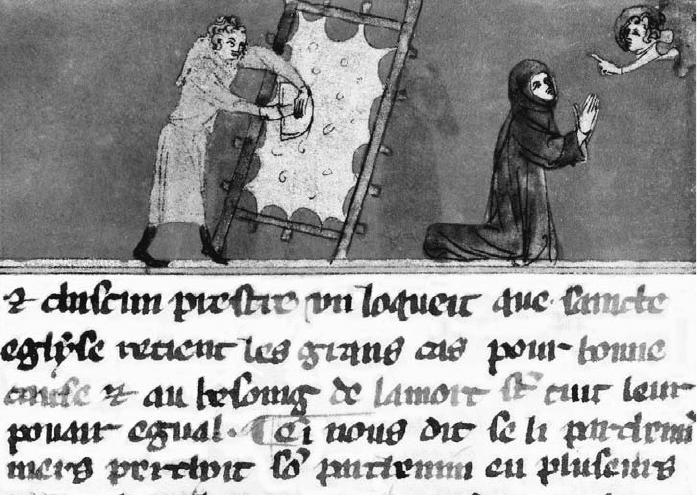 ⁊ chascun prestre un loqueit que saincte
eglyse retient les grans cas pour bonne
cause ⁊ au besoing de lamort tuit leur
pouair egual. ¶ Ci nous dit se li parchemi
niers sõ parchemin en pluseurs